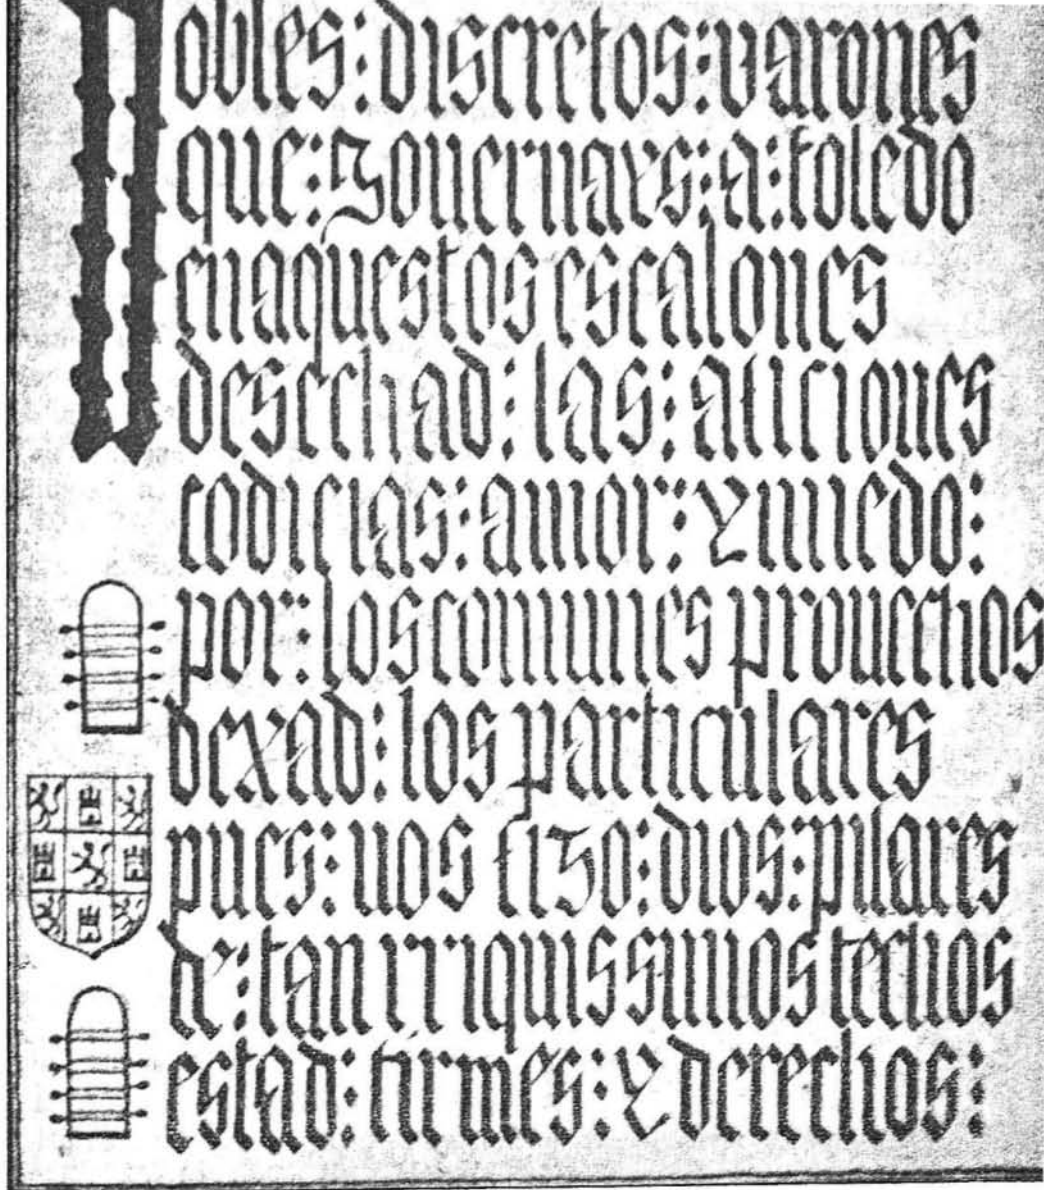 Nobles : discretos : varones
que : governays : a : toledo
enaquestos escalones
desechad : las : aficiones
codicias : amor : y miedo :
por : los comunes provechos
dexad : los particulares
pues : vos fizo : dios : pilares
de : tan rriquissimos techos
estad : firmes : y derechos :